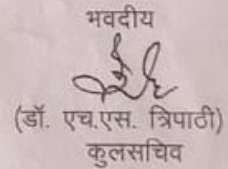 भवदीय
(डॉ. एच.एस. त्रिपाठी)
कुलसचिव